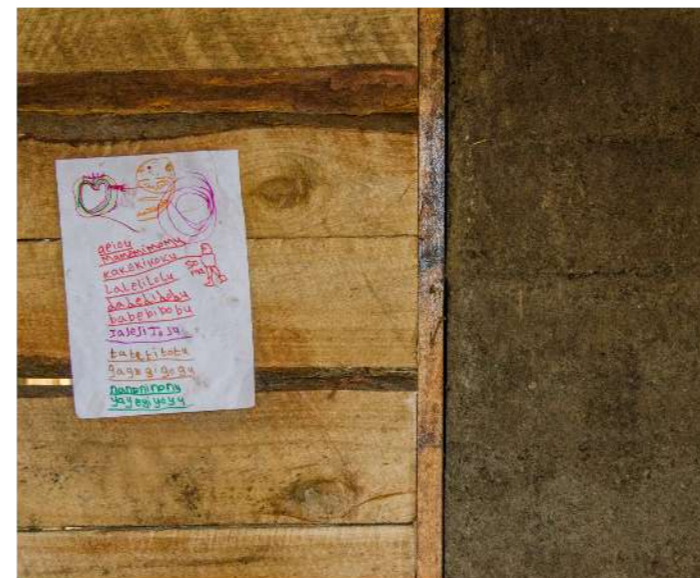 aeiou
mamemimomu
kakekikoku
so
ma
lalelilolu
dadedidodu
babebibobu
JaJeJiJoJu
tatetitotu
gagegigogu
naneninonu
yayeyiyoyu